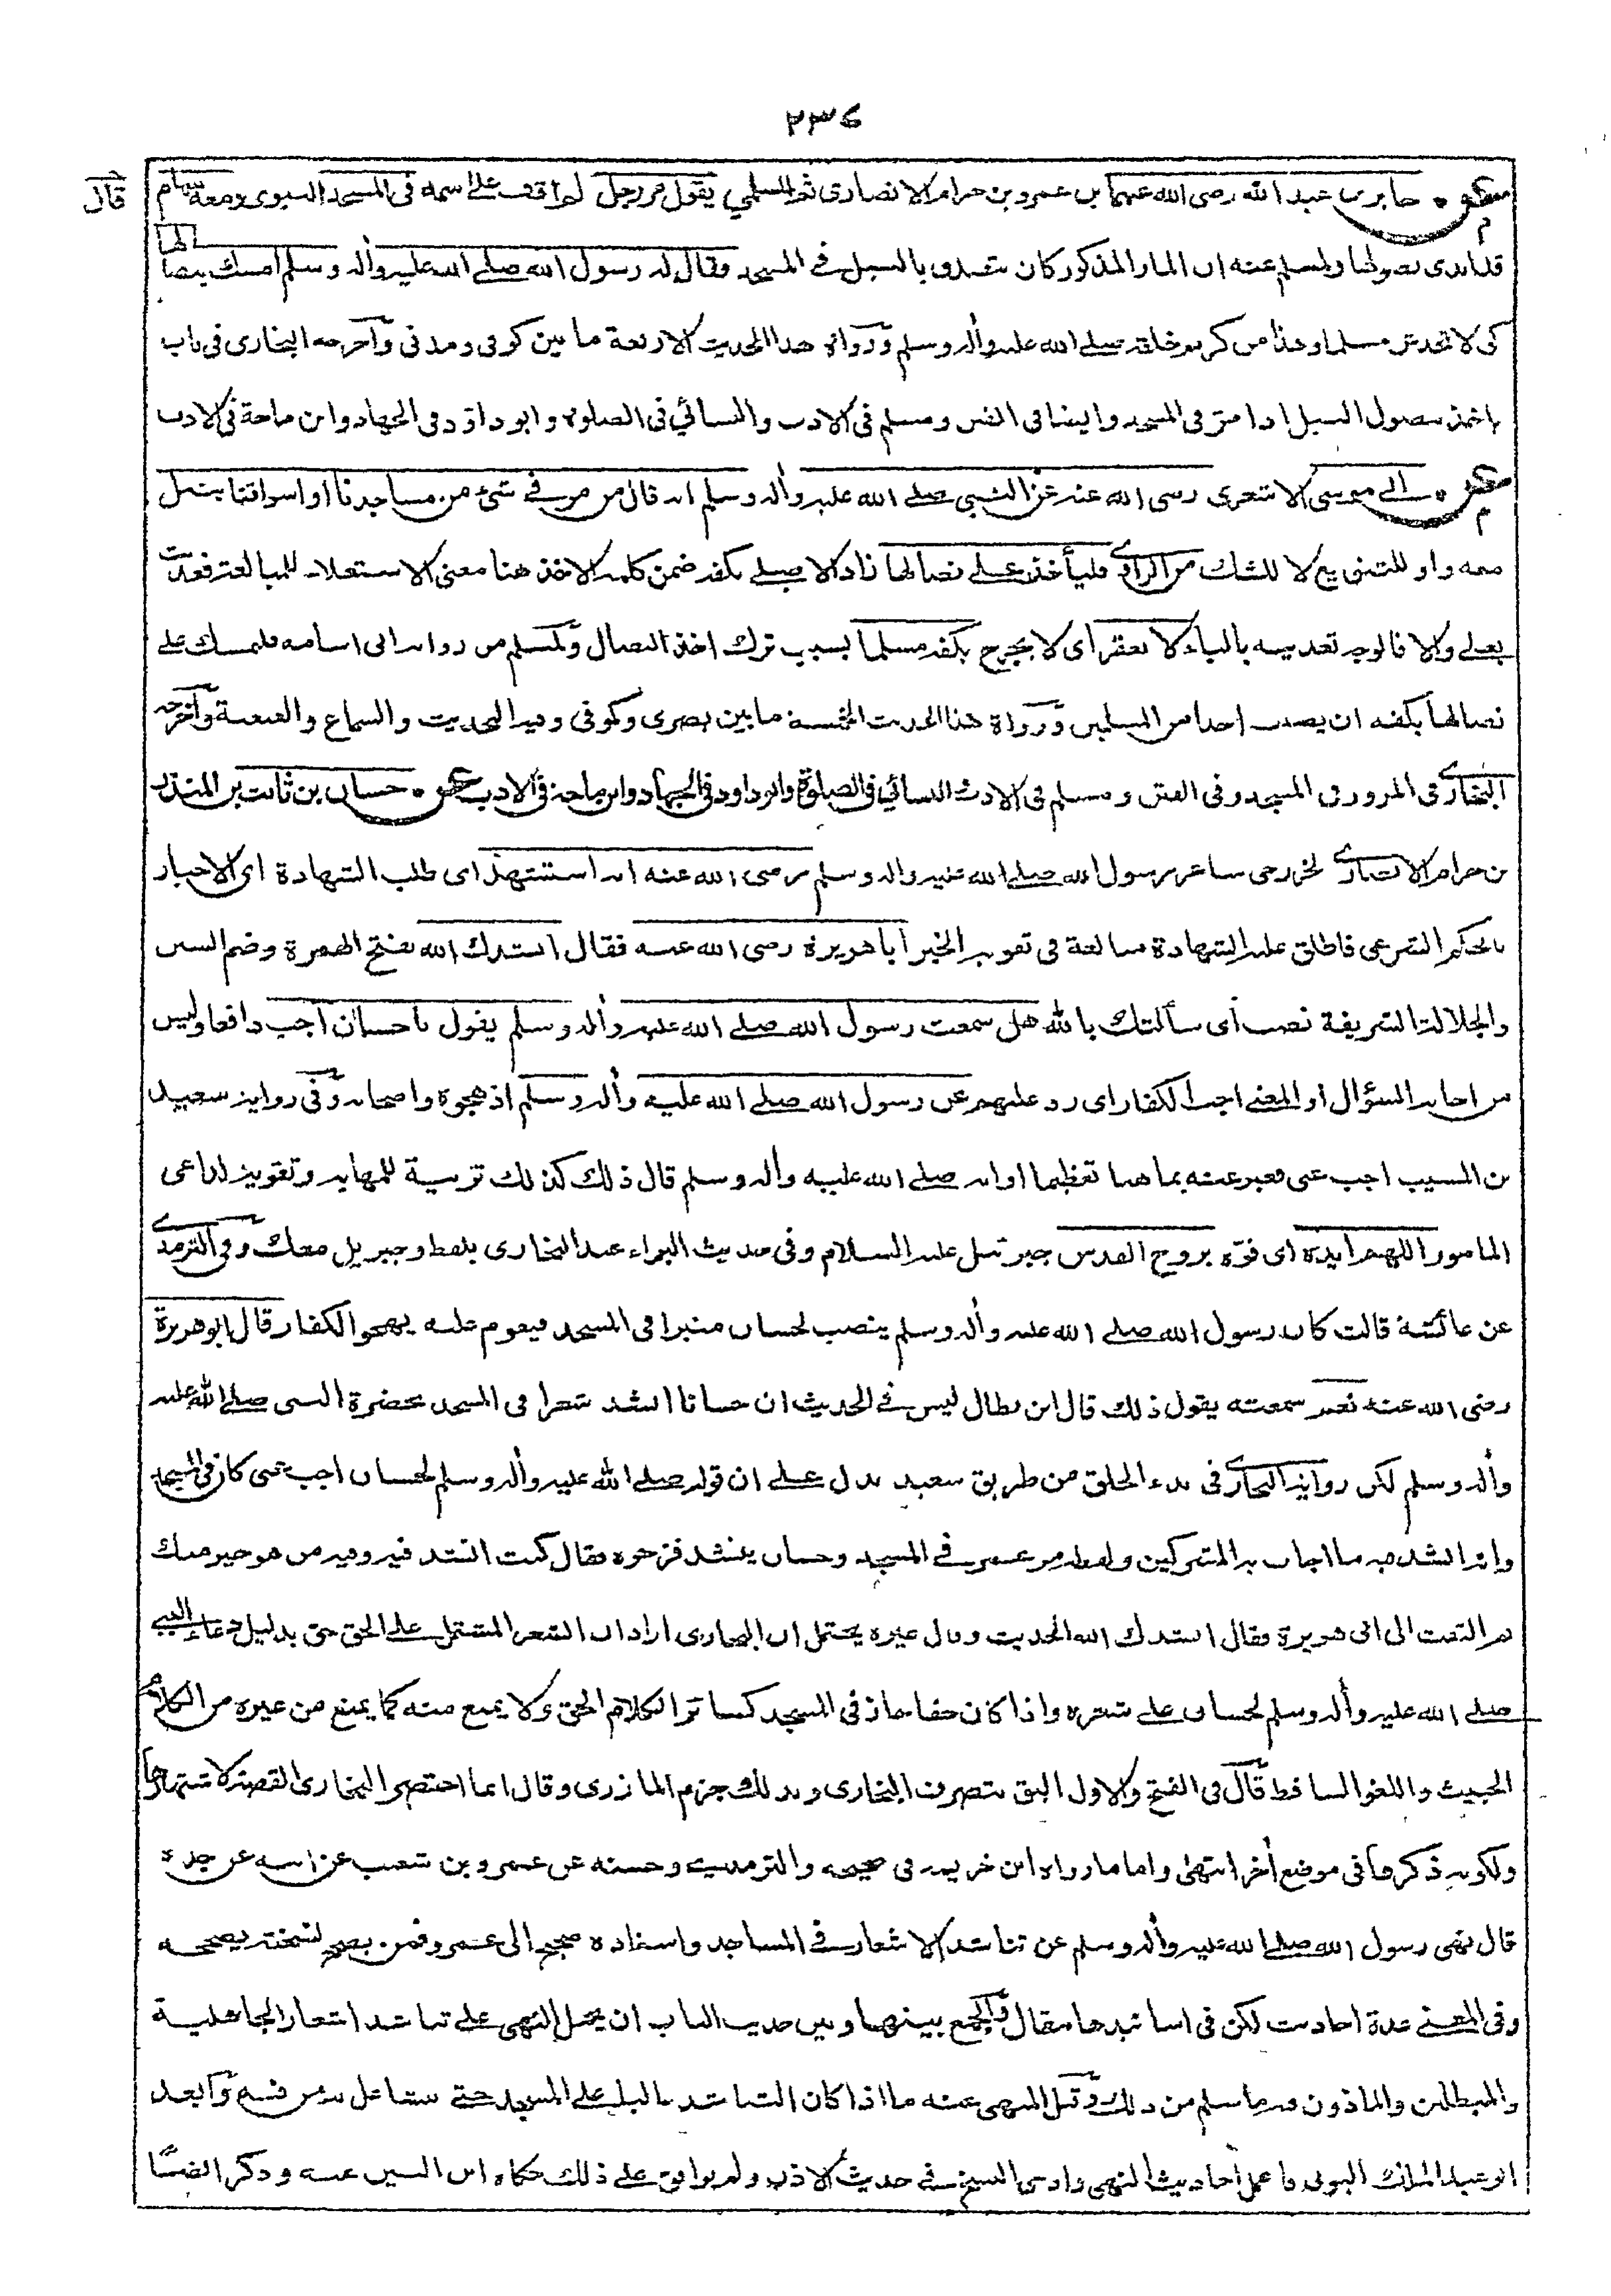 ٢٣٦
عن جابر بن عبد الله رضى الله عنهما بن عمرو بن حرام الانصارى ثم السلمي يقول مر رجل لم اقف على اسمه فى المسجد النبوى ومعه سهام
قال
قد ابدى نصولها ولمسلم عنه ان المار المذكور كان يتصدق بالنبل فى المسجد فقال له رسول الله صلى الله عليه وأله وسلم امسك بنصالها
كى لا تخدش مسلما وهذا من كريم خلقه صلى الله عليه وأله وسلم ورواة هذا الحديث الاربعة ما بين كوفى ومدنى وأخرجه البخارى فى باب
ياخذ بنصول النبل اذا مر فى المسجد وايضا فى الفتن ومسلم فى الادب والنسائي فى الصلوة وابو داؤد فى الجهاد وابن ماجة فى الادب
عن ابى موسى الاشعرى رضى الله عنه عن النبي صلى الله عليه وأله وسلم انه قال من مر فى شئ من مساجدنا او اسواقنا بنبل
معه واو للتنويع لا للشك من الراوى فليأخذ على نصالها زاد الاصيلى بكفه ضمن كلمة الاخذ هنا معنى الاستعلاء للمبالغة فعديت
بعلى والا فالوجه تعديته بالباء لا يعقر اى لا يجرح بكفه مسلما بسبب ترك اخذ النصال ولمسلم من رواية ابى اسامة فليمسك على
نصالها بكفه ان يصيب احدا من المسلمين ورواة هذا الحديث الخمسة ما بين بصرى وكوفى وفيه التحديث والسماع والعنعنة وأخرجه
البخارى فى المرور فى المسجد وفى الفتن ومسلم فى الادب النسائي فى الصلوة وابو داود فى الجهاد وابن ماجة فى الادب عن حسان بن ثابت بن المنذر
بن حرام الانصارى الخزرجى شاعر رسول الله صلى الله عليه وأله وسلم رضى الله عنه انه استشهد اى طلب الشهادة اى الاخبار
بالحكم الشرعى فاطلق عليه الشهادة مبالغة فى تقوية الخبر أبا هريرة رضى الله عنه فقال انشدك الله بفتح الهمزة وضم الشين
والجلالة الشريفة نصب أى سألتك بالله هل سمعت رسول الله صلى الله عليه وأله وسلم يقول يا حسان اجب دافعا وليس
من اجابة السؤال او المعنى اجب الكفار اى رد عليهم عن رسول الله صلى الله عليه وأله وسلم اذ هجوه واصحابه وفى رواية سعيد
بن المسيب اجب عنى فعبر عنه بما هنا تعظيما او انه صلى الله عليه وأله وسلم قال ذلك كذلك تربية للمهابة وتقوية لداعى
المامور اللهم ايده اى قوّه بروح القدس جبرئيل عليه السلام وفى حديث البراء عند البخارى بلفظ وجبريل معك وفى الترمذى
عن عائشة قالت كان رسول الله صلى الله عليه وأله وسلم ينصب لحسان منبرا فى المسجد فيقوم عليه يهجوا الكفار قال ابو هريرة
رضى الله عنه نعم سمعته يقول ذلك قال ابن بطال ليس فى الحديث ان حسانا انشد شعرا فى المسجد بحضرة النبى صلى الله عليه
وأله وسلم لكن رواية البخارى فى بدء الخلق من طريق سعيد تدل على ان قوله صلى الله عليه وأله وسلم لحسان اجب عنى كان فى المسجد
وانه انشد فيه ما اجاب به المشركين ولفظه مر عمر فى المسجد وحسان ينشد فزجره فقال كنت انشد فيه وفيه من هو خير منك
ثم التفت الى ابى هريرة فقال انشدك الله الحديث وقال غيره يحتمل ان البخارى اراد ان الشعر المشتمل على الحق حق بدليل دعاء النبى
صلى الله عليه وأله وسلم لحسان على شعره واذا كان حقا جاز فى المسجد كسائر الكلام الحق ولا يمنع منه كما يمنع من غيره من الكلام
الخبيث واللغو الساقط قال فى الفتح والاول اليق بتصرف البخارى وبذلك جزم المازرى وقال انما اختصر البخارى القصة لاشتهارها
ولكونه ذكرها فى موضع أخر انتهى واما ما رواه ابن خزيمة فى صحيحه والترمذى وحسنه عن عمرو بن شعيب عن ابيه عن جده
قال نهى رسول الله صلى الله عليه وأله وسلم عن تناشد الاشعار فى المساجد واسناده صحيح الى عمرو فمن يصحح نسخته يصححه
وفى المعنى عدة احاديث لكن فى اسانيدها مقال والجمع بينهما وبين حديث الباب ان يحمل النهى على تناشد اشعار الجاهلية
والمبطلين والماذون فيه ما سلم من ذلك وقيل المنهى عنه ما اذا كان التناشد غالبا على المسجد حتى يتشاغل به من فيه وأبعد
ابو عبد الملك البونى فاعمل احاديث النهى وادعى النسخ فى حديث الاذن ولم يوافق على ذلك حكاه ابن التين عنه وذكر ايضًا